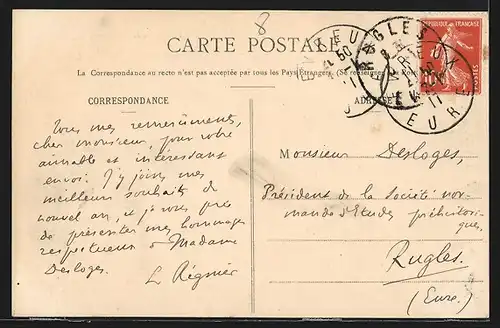 8
CARTE POSTALE
La Correspondance au recto n'est pas acceptée par tous les Pays Étrangers. (Se renseigner
CORRESPONDANCE
Tous mes remerciements,
cher monsieur, pour votre
aimable et intéressant
envoi. J'y joins mes
meilleurs souhaits de
nouvel an, et je vous prie
de présenter mes hommages
respectueux à Madame
Desloges.
L Régnier
Monsieur Desloges,
Président de la Société nor-
mande d'Etudes préhistori-
ques,
Rugles.
(Eure.)
RUGLES
EURE
REPUBLIQUE FRANÇAISE
10
POSTES